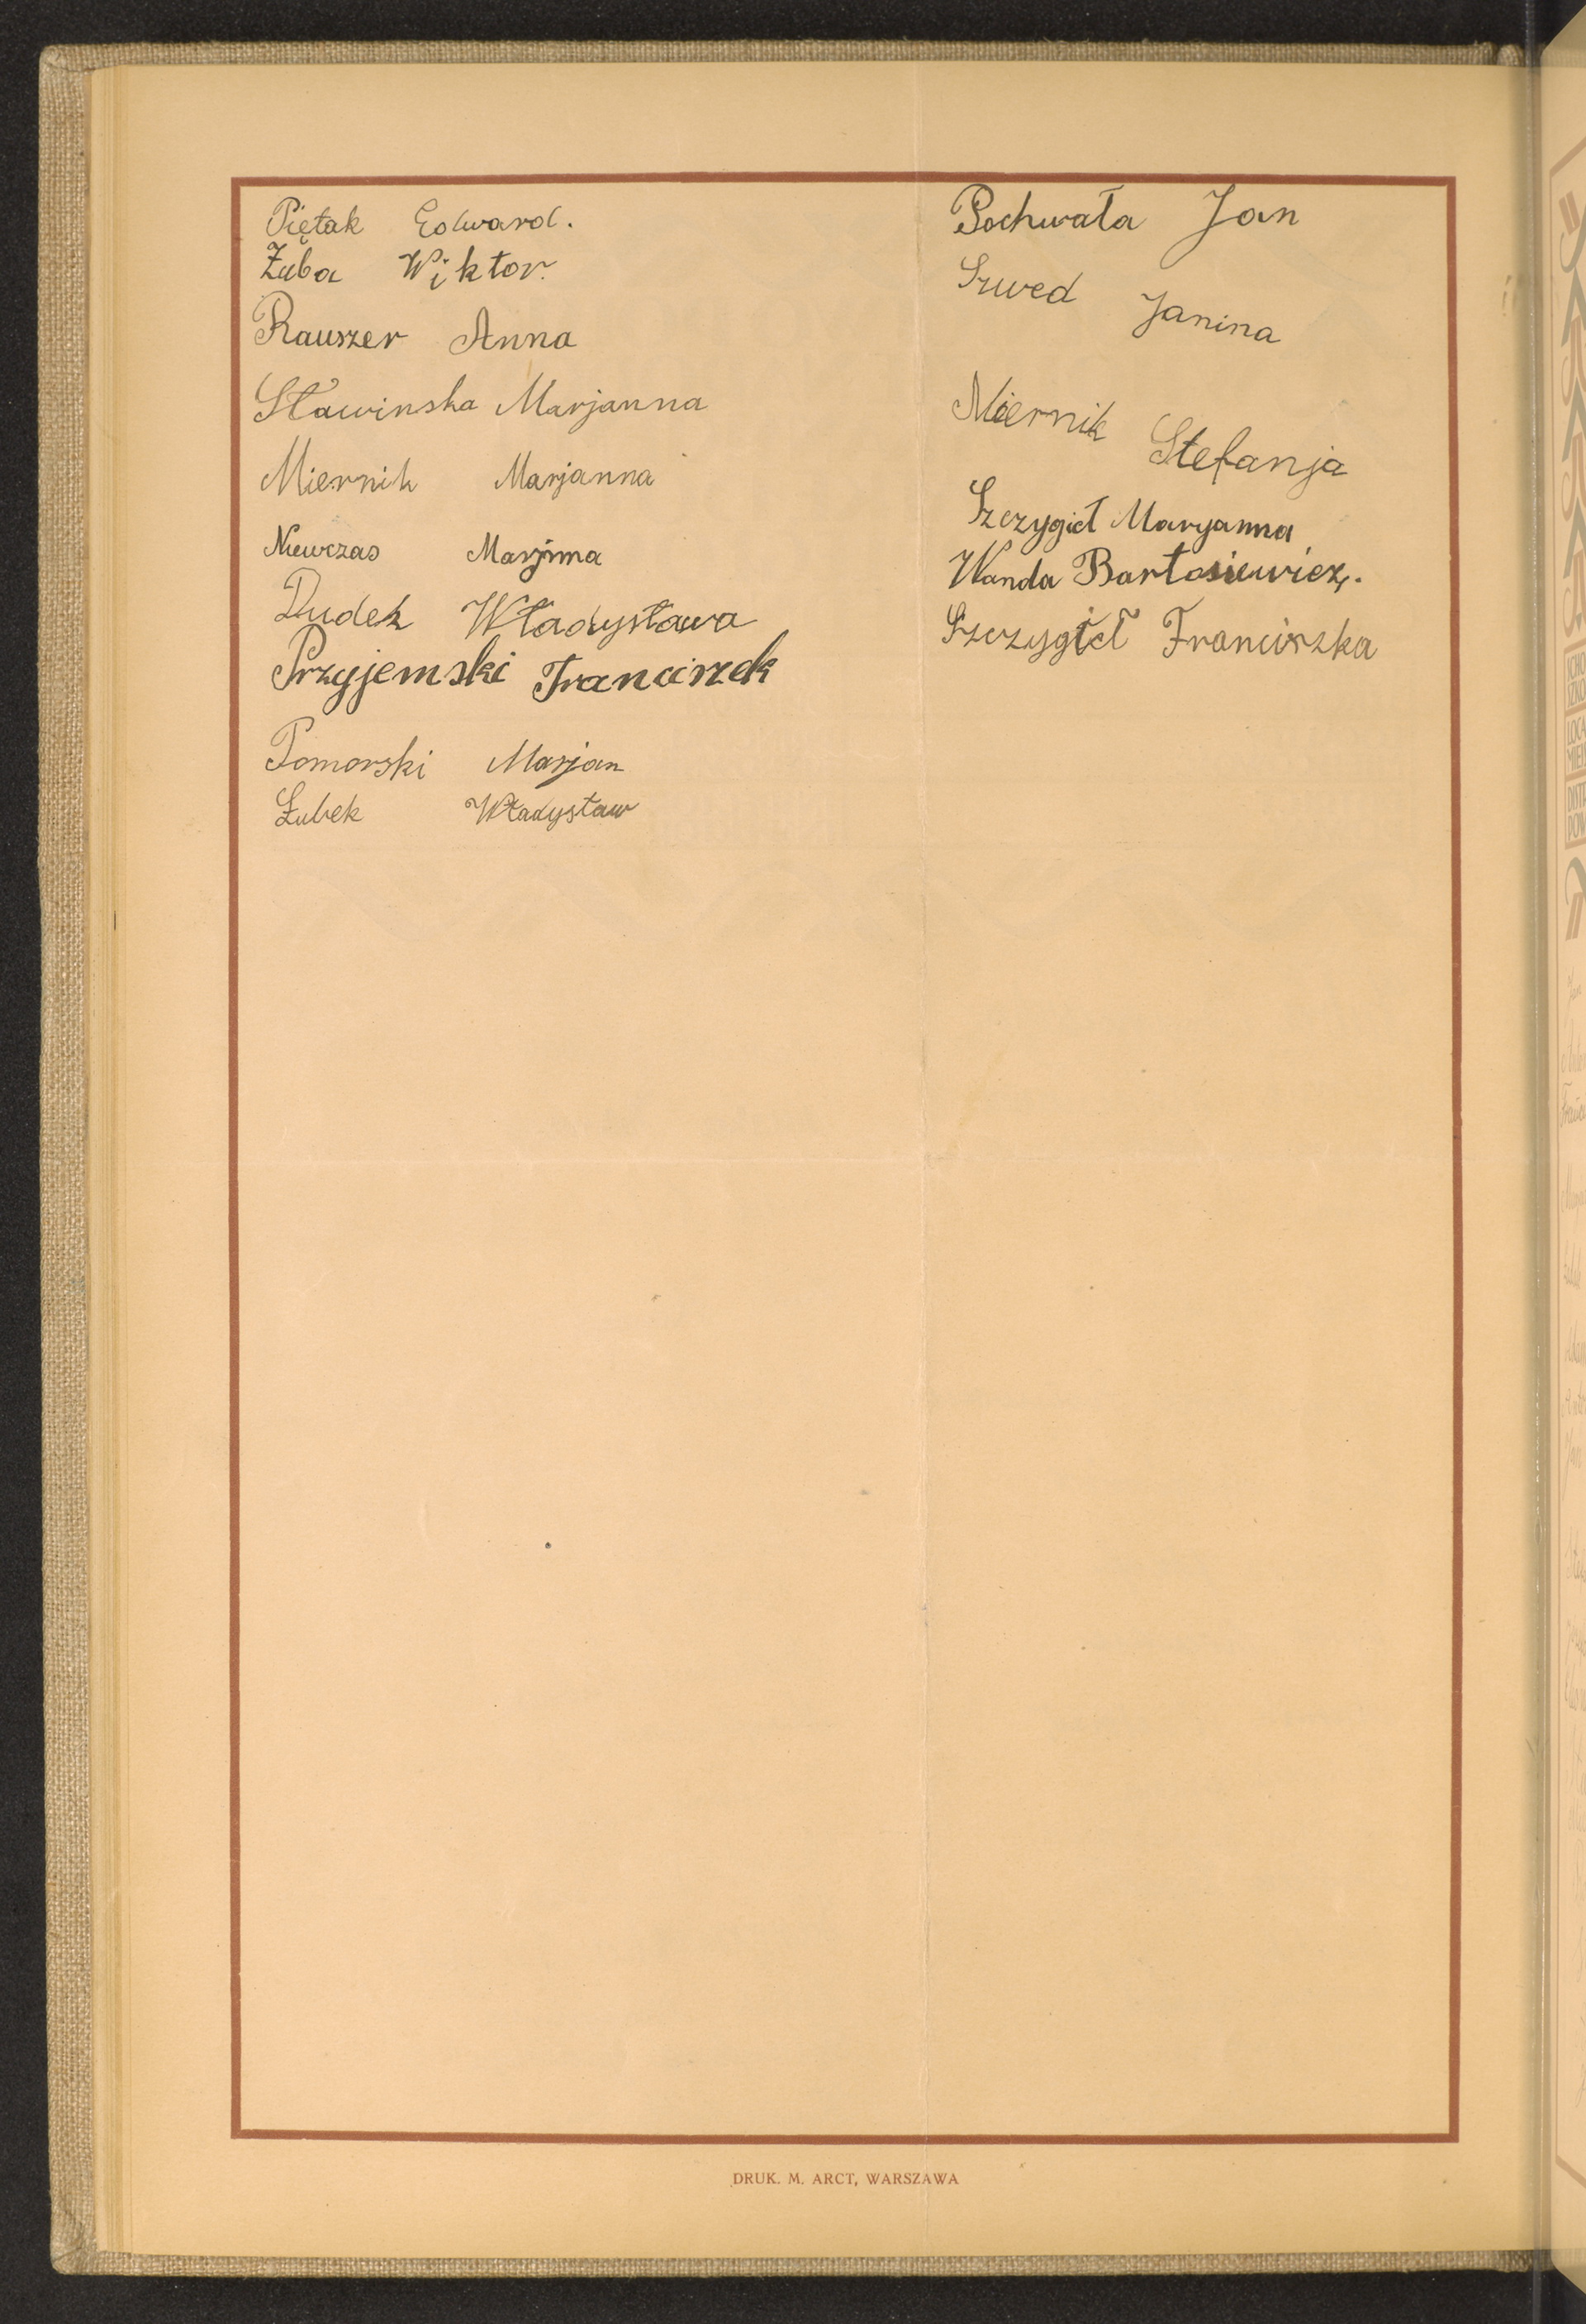 Piętak Edward.
Żuba Wiktor.
Rauszer Anna
Sławinska Marjanna
Miernik Marjanna
Niewczas Marjnna
Dudek Władysława
Przyjemski Franciszek
Pomorski Marjan
Żubek Władysław
Pochwała Jan
Szwed Janina
Miernik Stefanja
Szczygieł Maryanna
Wanda Bartosiewicz.
Szczygieł Franciszka
DRUK. M. ARCT, WARSZAWA